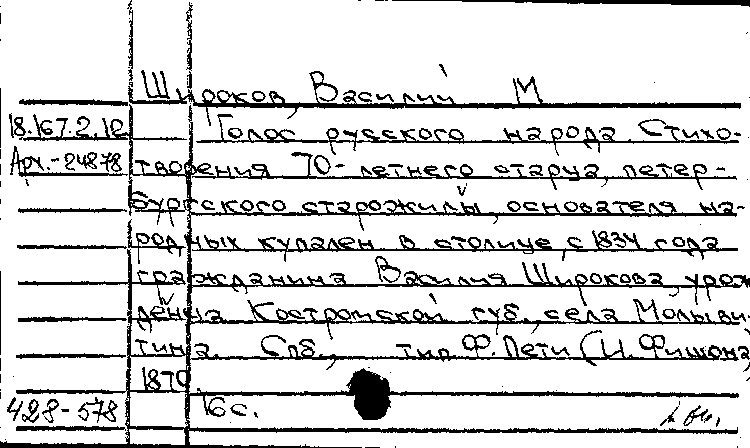 Широков, Василий М
18.167.2.12 Голос русского народа. Стихо-
Арх.-24878 творения 70-летнего старца, петер-
бургского старожилы, основателя на-
родных купален в столице, с 1834 года
гражданина Василия Широкова, урож
денца Костромской губ., села Молыви-
тина. Спб., тип. Ф. Пети (И. Фишона)
1870.
428-578 16 с.